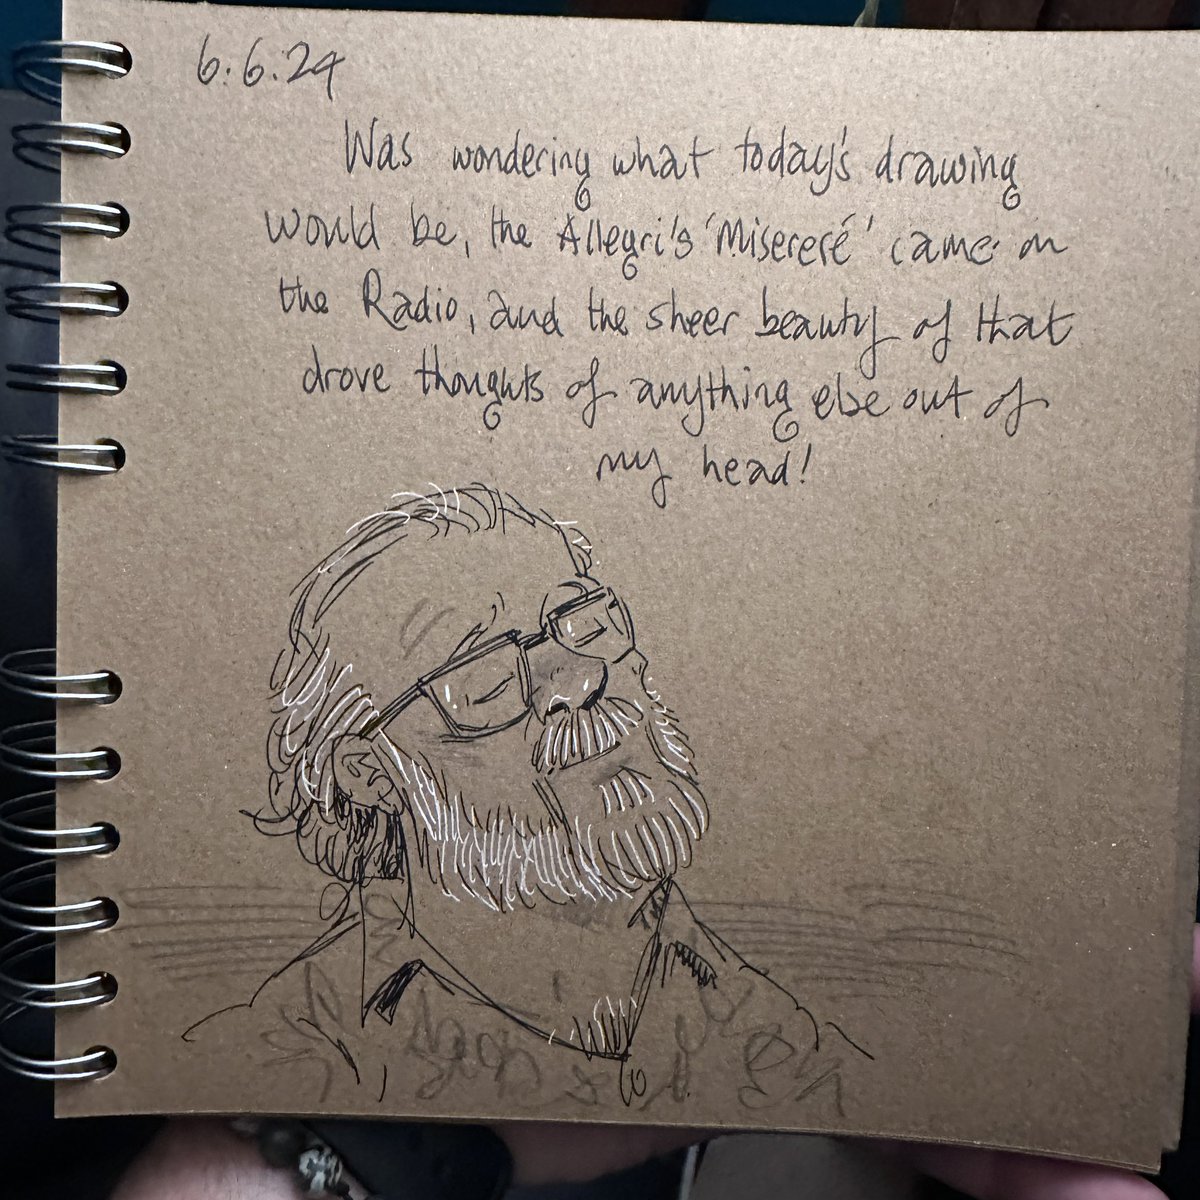 6.6.24
Was wondering what today's drawing
would be, the Allegri's 'Misereré' came on
the Radio, and the sheer beauty of that
drove thoughts of anything else out of
my head!